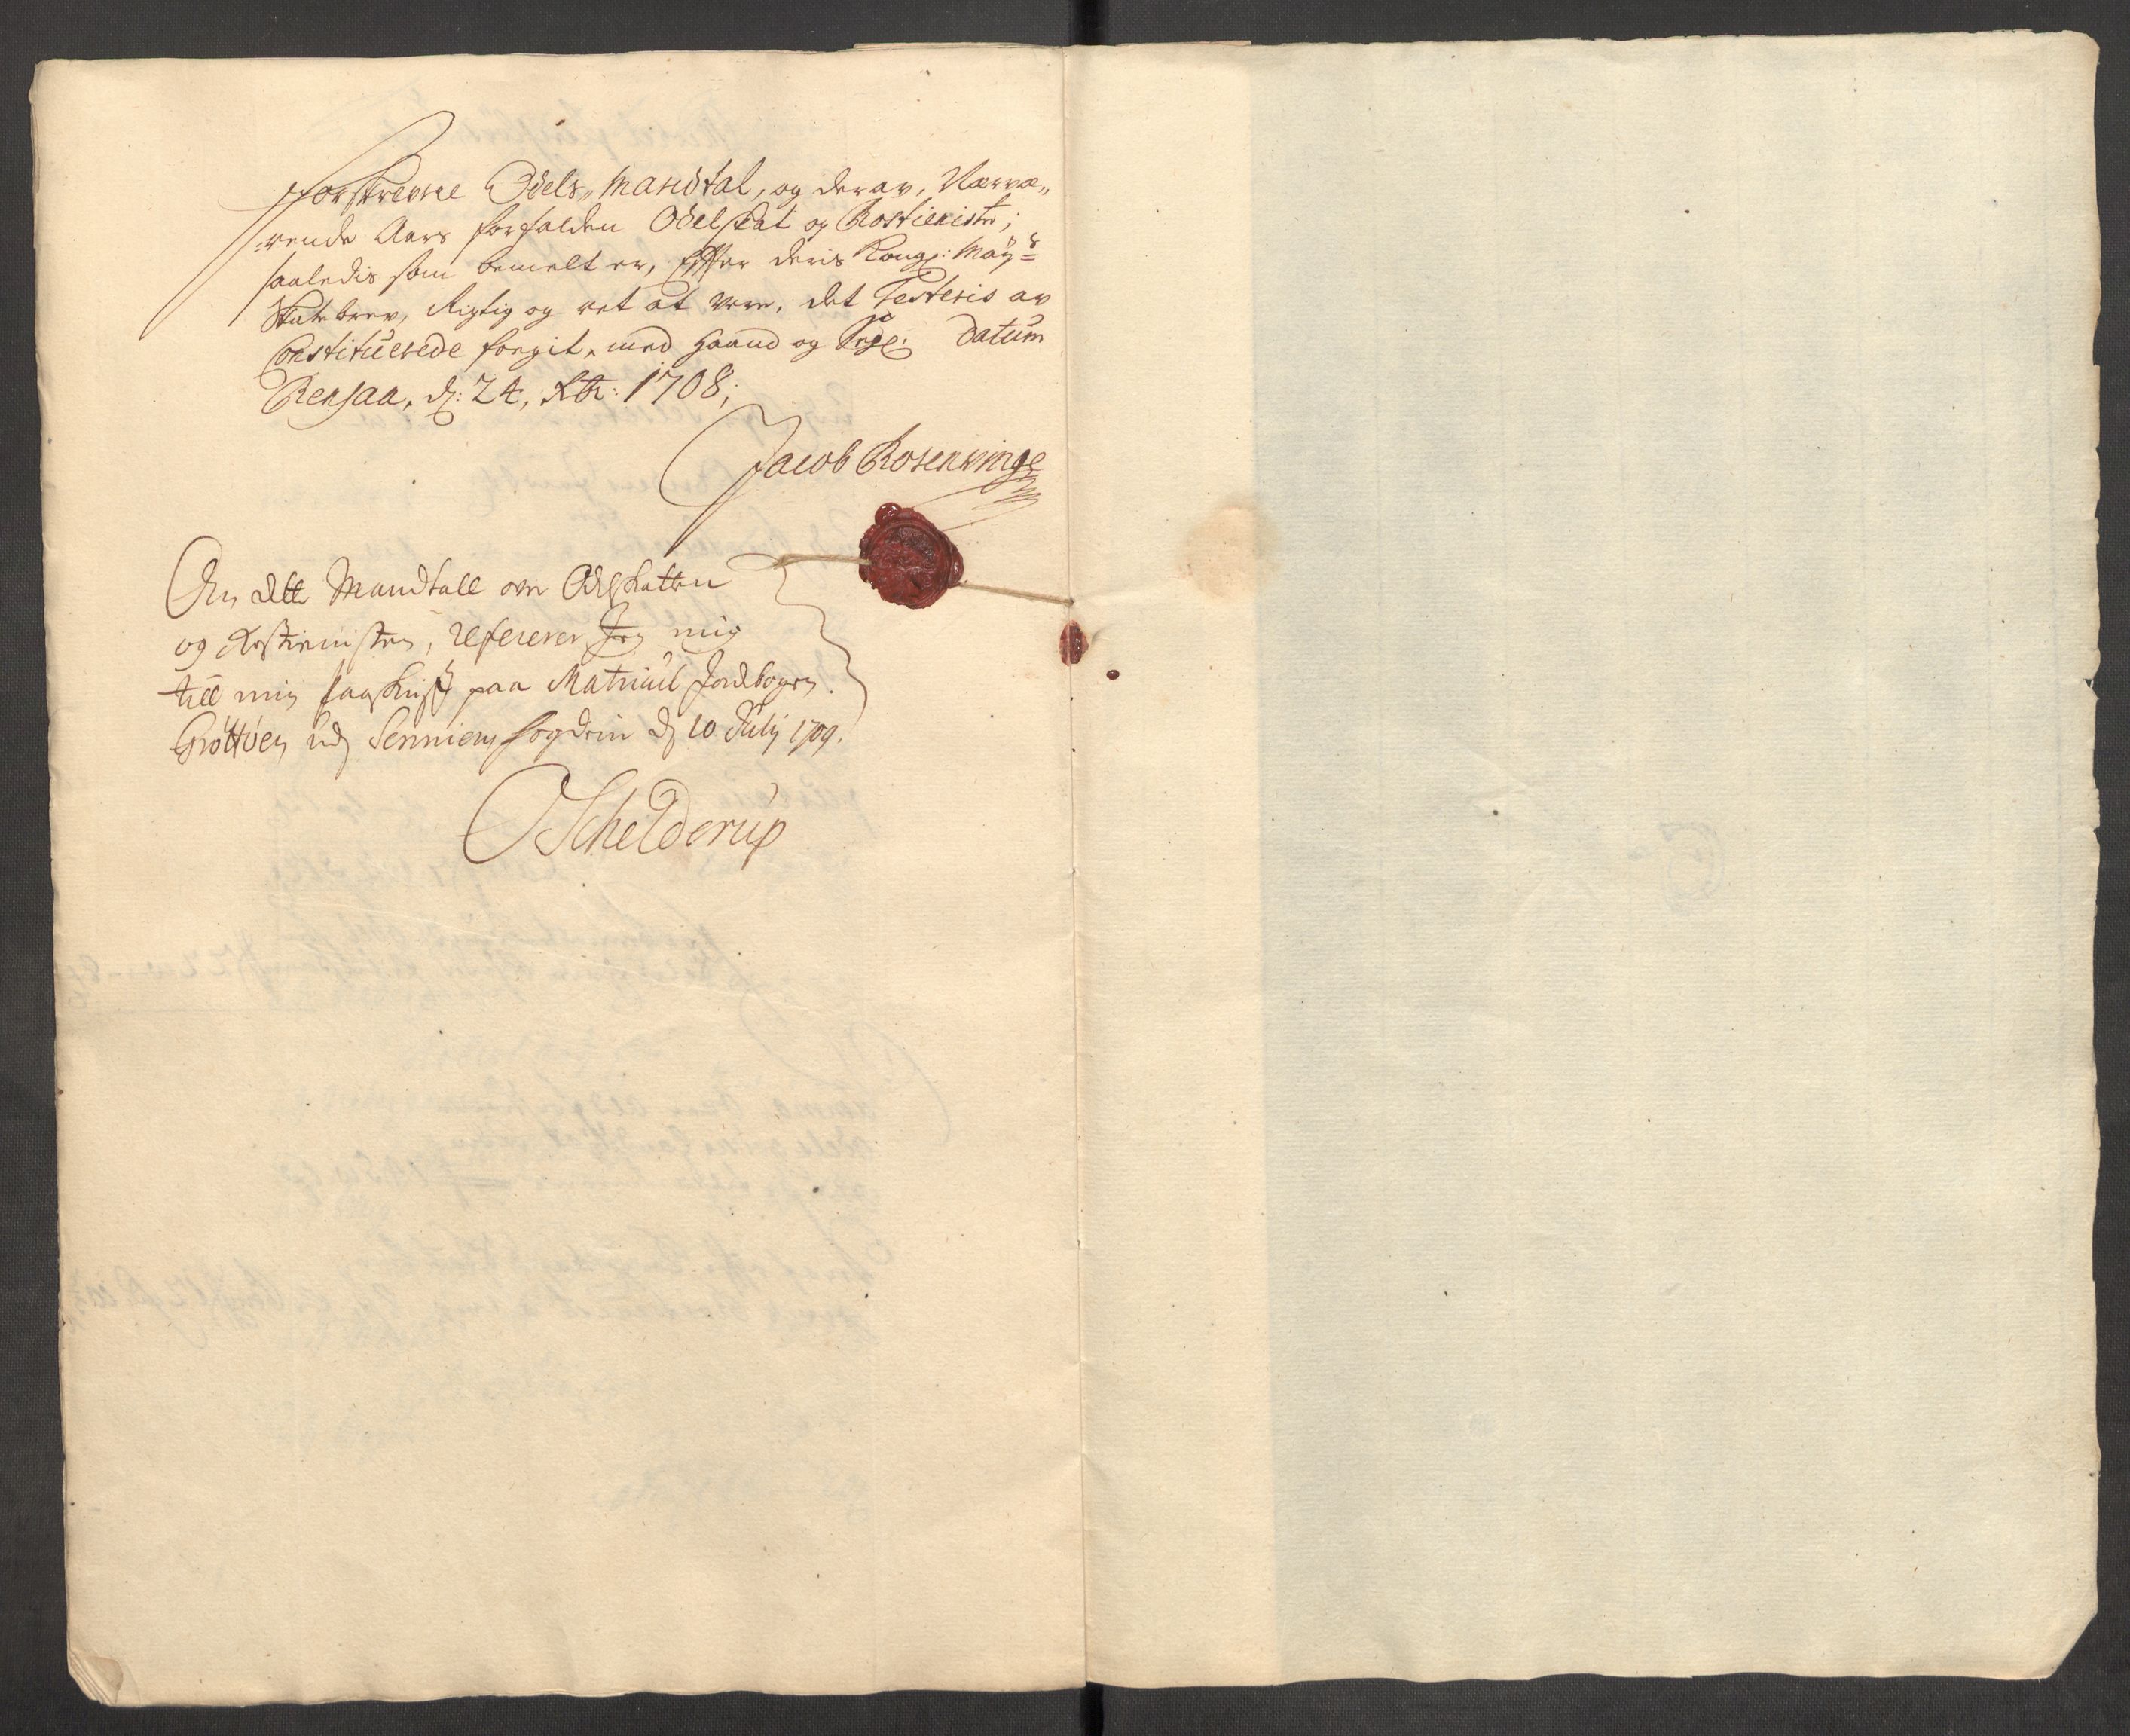 Forskrevne Odels„ Mandtal, og derav, Nærvæ„
„rende Aars forfalden Odelskat og Rostieniste;
saaledis som bemelt er, Effter deris Kongl: May:ts
Skatebrev, Rigtig og ret at være, det Testeris av
Constituerede foegit, med Haand og Segl: Datum
Rensaa, d: 24, Xbr: 1708;
Jacob Rosenvinge
An dette Mandtall over Odelskatten
og Rostienisten, refererer Jeg mig
till min paaskrifft paa Matricul Jordbogen.
Grøttøen udj Senniens fogderie d 10 Julij 1709.
OSchelderup